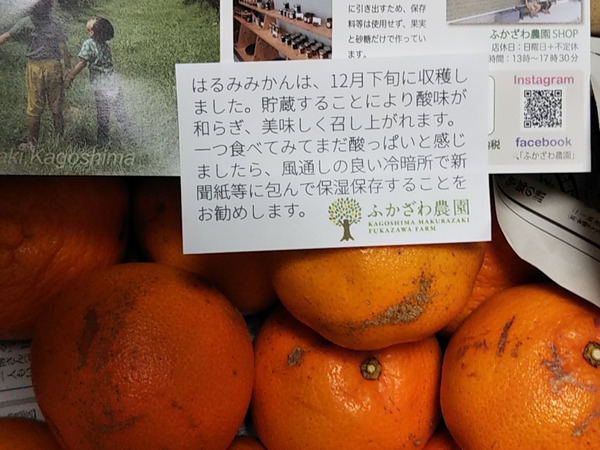 に引き出すため、保存
料等は使用せず、果実
と砂糖だけで作ってい
ます。
ふかざわ農園 SHOP
店休日:日曜日+不定休
時間:13時〜17時30分
Instagram
facebook
「ふかざわ農園」
aki Kagoshima
はるみみかんは、12月下旬に収穫し
ました。貯蔵することにより酸味が
和らぎ、美味しく召し上がれます。
一つ食べてみてまだ酸っぱいと感じ
ましたら、風通しの良い冷暗所で新
聞紙等に包んで保湿保存することを
お勧めします。
ふかざわ農園
KAGOSHIMA MAKURAZAKI
FUKAZAWA FARM